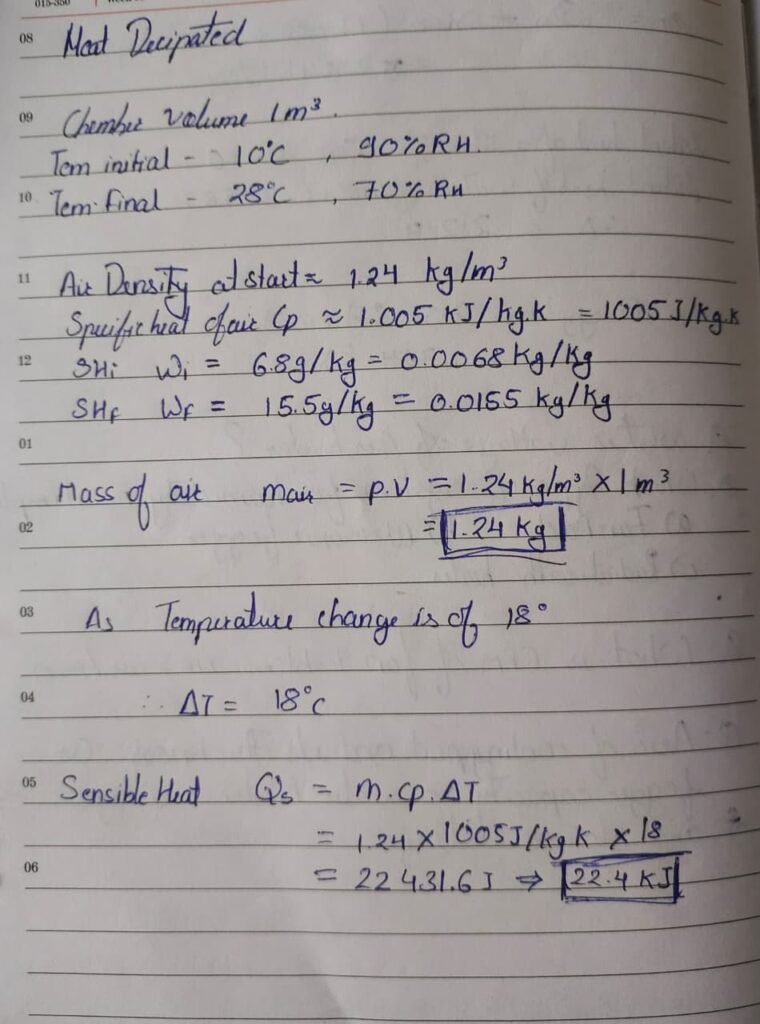 015-350
08 Heat Decipated
09 Chember volume 1m³.
Tem initial - 10°C , 90% RH.
10 Tem. Final - 28°C , 70% RH
11 Air Density at start ≈ 1.24 kg/m³
Specific heat of air Cp ≈ 1.005 KJ/kg.k = 1005 J/Kg.k
12 SHi Wi = 6.8g/kg = 0.0068 Kg/Kg
SHf Wf = 15.5g/kg = 0.0155 kg/Kg
01
Mass of air mair = ρ.V = 1.24 Kg/m³ × 1 m³
02 = 1.24 Kg
03 As Temperature change is of 18°
04 ∴ ΔT = 18°C
05 Sensible Heat Qs = m.cp.ΔT
= 1.24 × 1005 J/kg K × 18
06 = 22431.6 J ⇒ 22.4 KJ